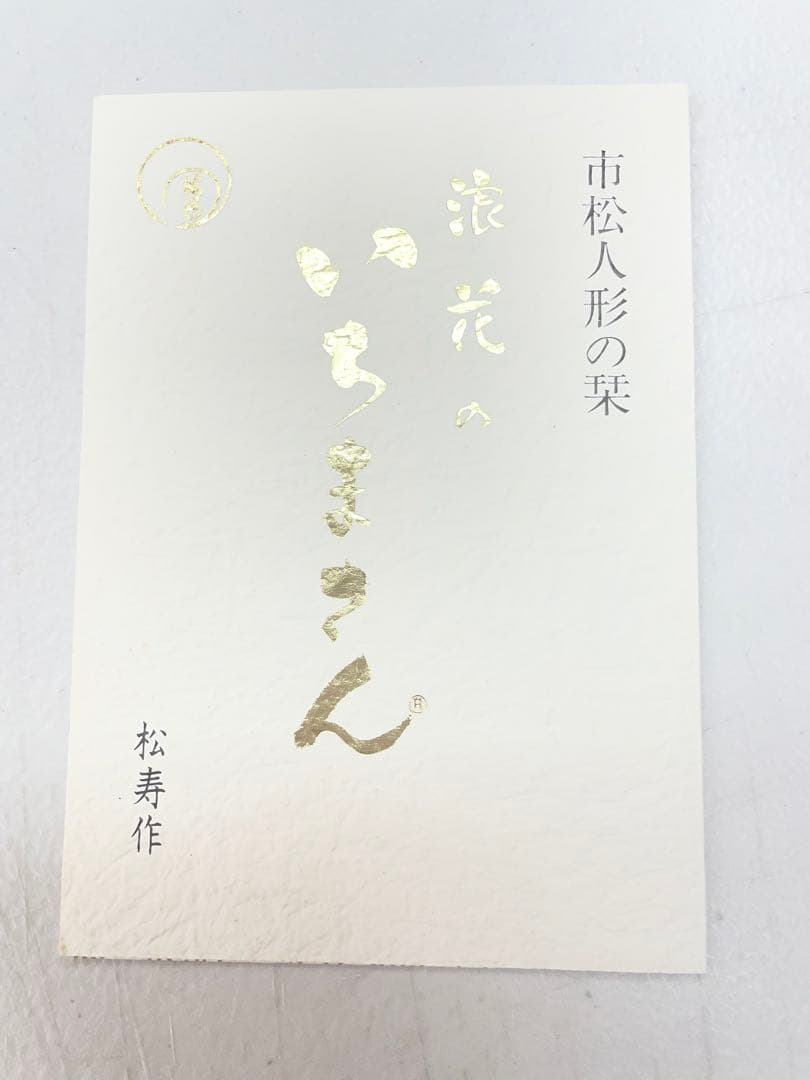 市松人形の栞
浪花の
いちまさん®
松寿作